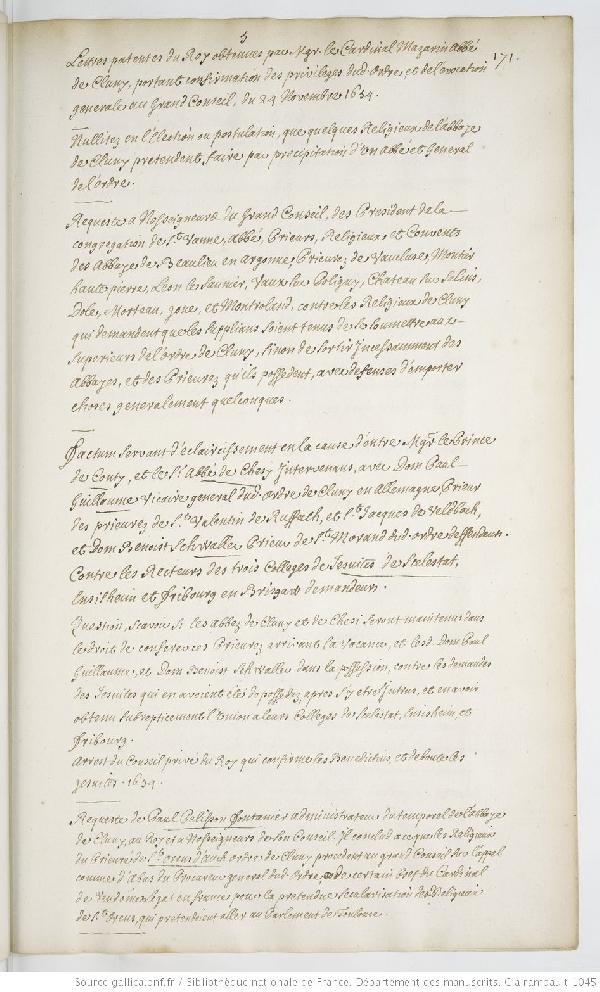 3
171.
Lettres patentes du Roy obtenues par Mgr. le Cardinal Mazarin Abbé
de Cluny, portant confirmation des privileges dud. ordre, et de l'evocation
generale au Grand Conseil, du 24 Novembre 1654.
Nullitez en l'élection ou postulation, que quelques Religieux de l'abbaye
de Cluny pretendent, faire par precipitation d'un abbé et General
de l'ordre.
Requeste a Nosseigneurs du Grand Conseil, des President de la
congregation de St. Vanne, Abbé, Prieurs, Religieux, et Convents
des Abbaye de Beaulieu en Argonne, Prieurez de Vaucluse, Moutier
haute pierre, Leon le Saunier, Vaux sur Poligny, Chateau sur Salins,
Dole, Morteau, et Montroland, contre les Religieux de Cluny
qui demandent que les supplians soient tenus de se soumettre aux
Superieurs de l'ordre de Cluny, sinon de sortir Incessamment des
Abbayes, et des Prieurez qu'ils possedent, avec defenses d'emporter
choses generalement quelconques.
Factum servant d'éclaircissement en la cause d'entre Mgr. le Prince
de Conty, et le Sr. Abbé de Chesy Intervenans, avec Dom Paul
Guillaume Vicaire general dud. ordre de Cluny en Allemagne Prieur
des prieurez de St. Valentin de Ruffach, et St. Jacques de Veldbach,
et Dom Benoist Schwalle Prieur de St. Morand dud. ordre deffendeurs.
Contre les Recteurs des trois Colleges de Jesuites de Scelestat,
Ensilheim et Fribourg en Brisgau demandeurs.
Question, scavoir si les abbez de Cluny et de Chesi seront maintenus dans
le droit de conferer ces Prieurez arrivant la Vacance, et lesd. Dom Paul
Guillaume, et Dom Benoist Schwalle dans la possession, contre les demandes
des Jesuites qui en avoient été depossedez, apres s'y etre et en avoir
obtenu subrepticement l'Union a leurs Colleges de Scelestat, Ensisheim, et
Fribourg.
Arrest du Conseil privé du Roy qui confirme les Benedictins, et deboute les
Jesuites. 1654.
Requeste de Paul Pelisson Fontanier administrateur du temporel de l'abbaye
de Cluny, au Roy et a Nosseigneurs de son Conseil. Il conclud a ce que les Religieux
du Prieuré de ordre de Cluny procedent au grand Conseil sur l'appel
comme d'abus du Procureur general dud. Ordre, de certain bref du Cardinal
de Vendome legat en france, pour la pretendue secularisation desd. Religieux
de St. qui pretendoient aller au Parlement de Toulouse.
Source gallica.bnf.fr / Bibliothèque nationale de France. Département des manuscrits. Clairambault 1045